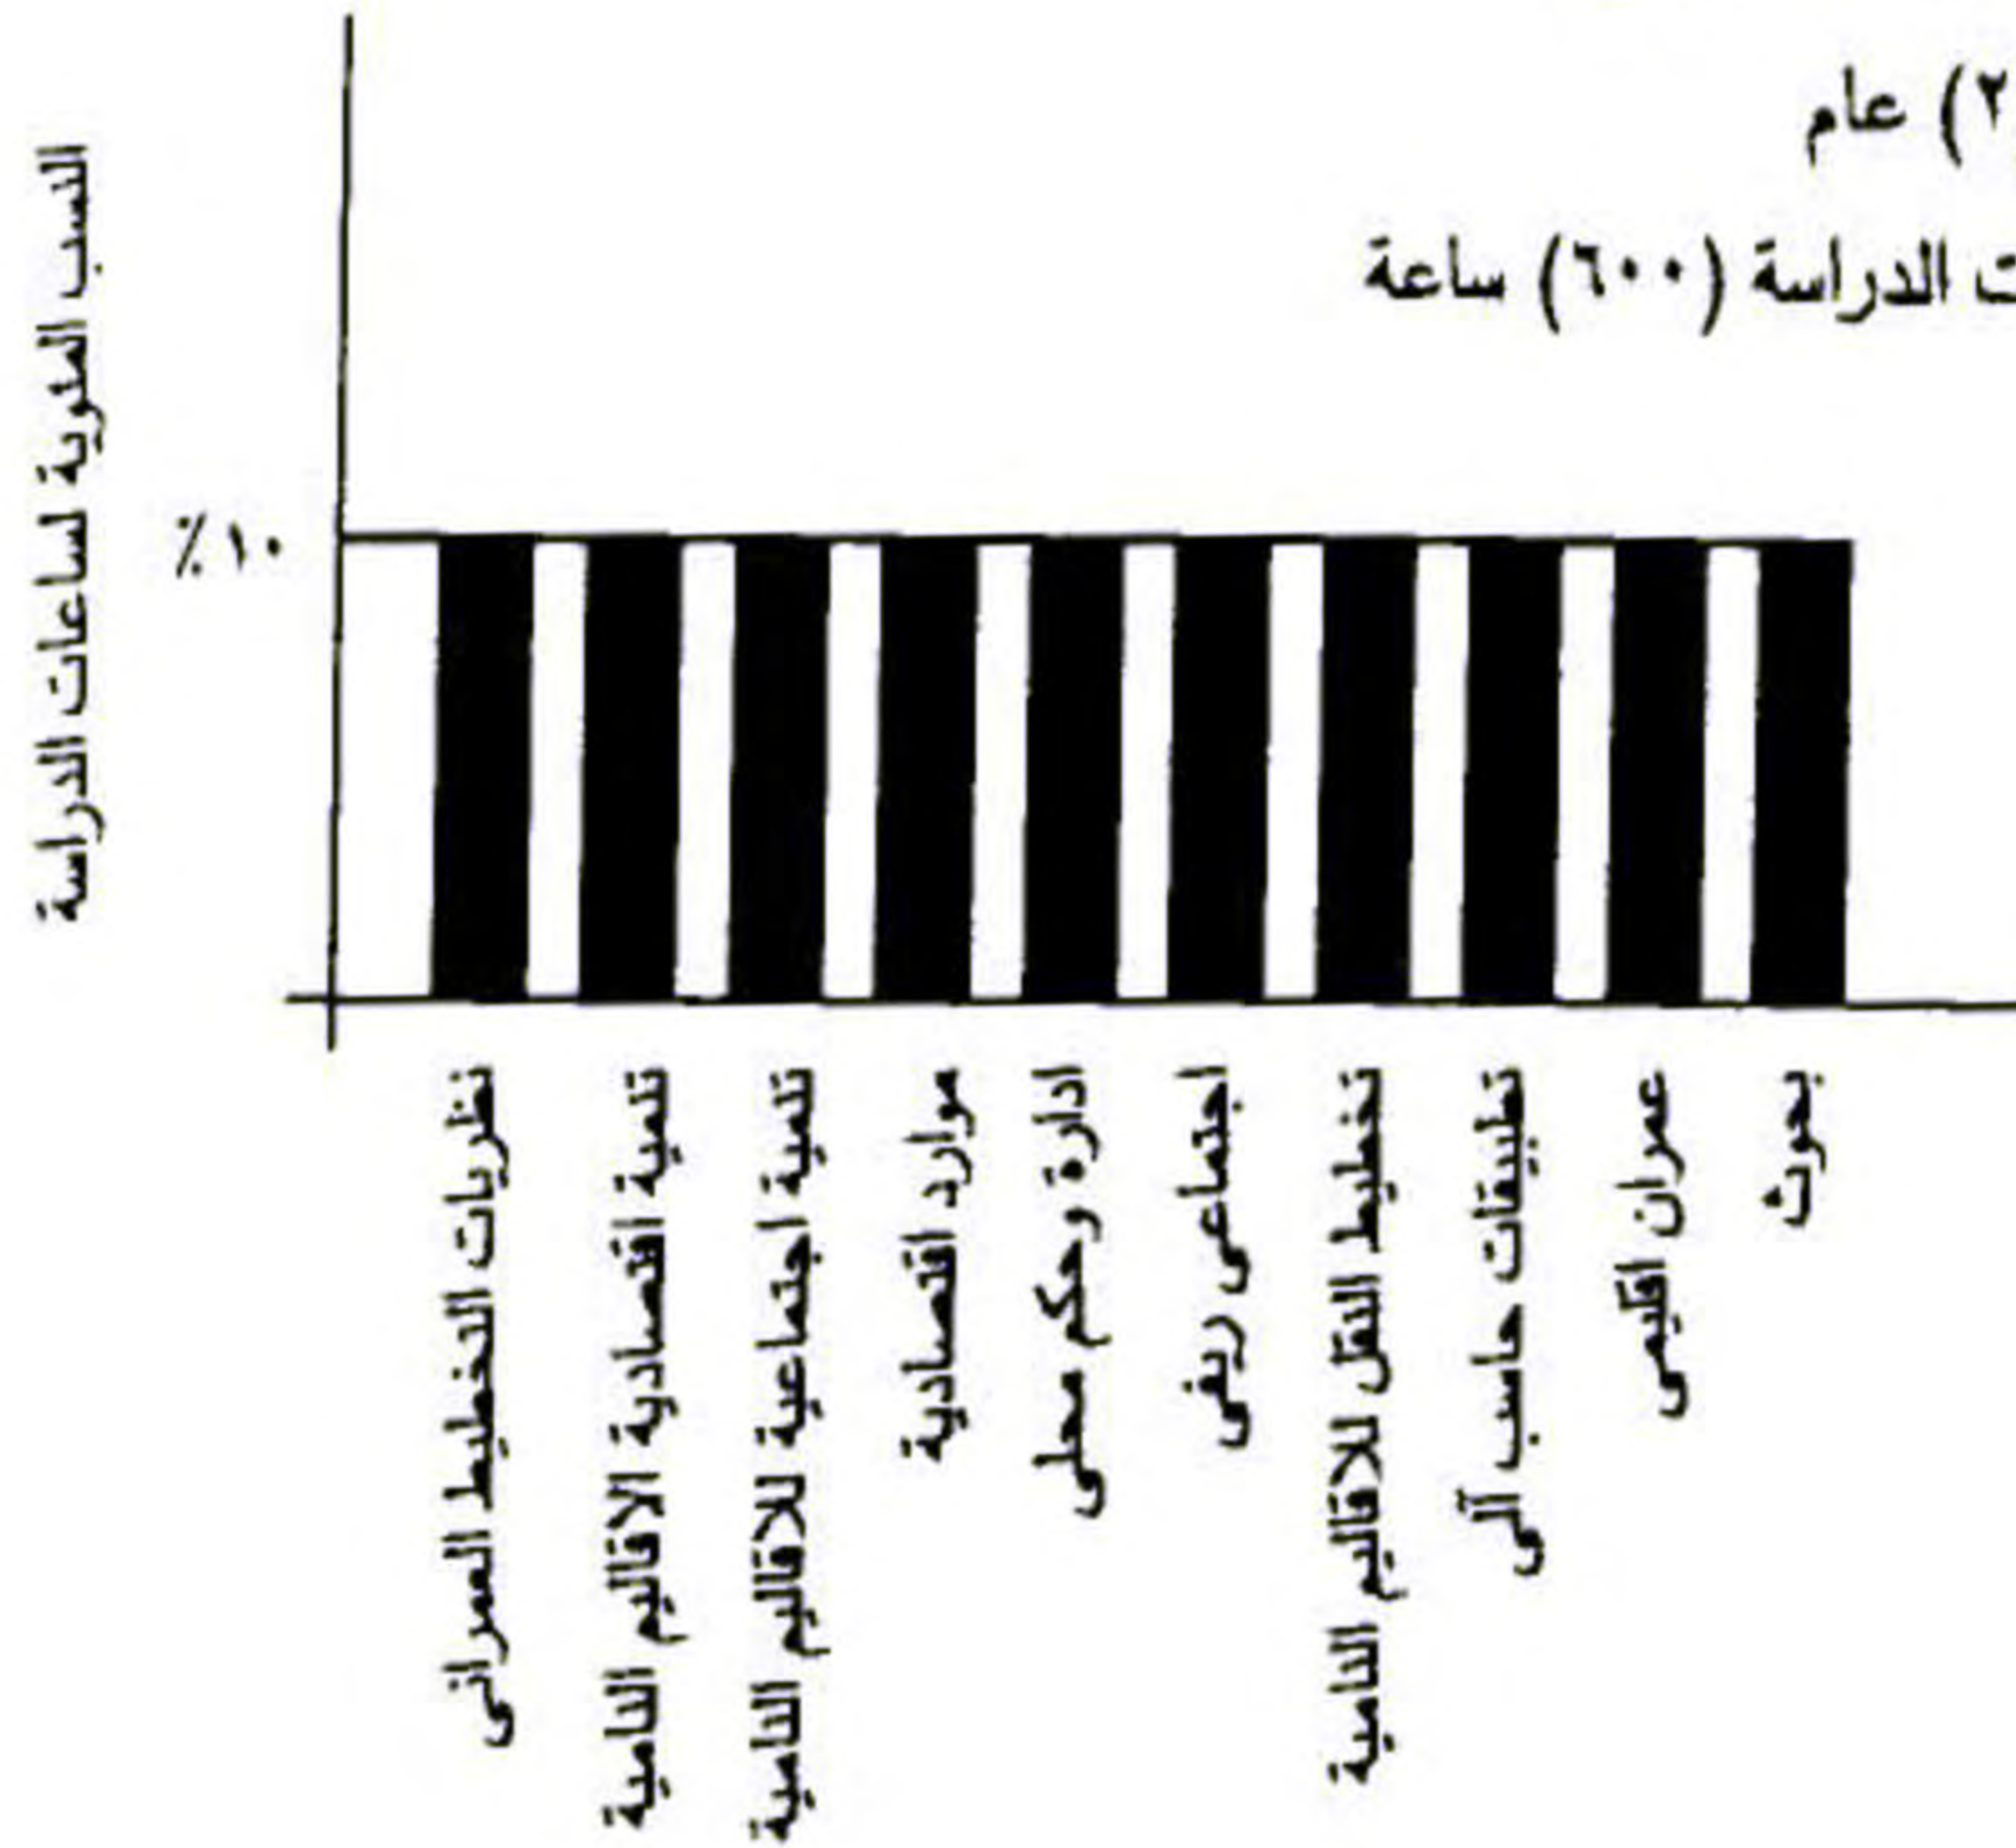 ٢) عام
ت الدراسة (٦٠٠) ساعة
النسب المئوية لساعات الدراسة
٪١٠
نظريات التخطيط العمرانى
تنمية اقتصادية الاقاليم النامية
تنمية اجتماعية للاقاليم النامية
موارد اقتصادية
ادارة وحكم محلى
اجتماعى ريفى
تخطيط النقل للاقاليم النامية
تطبيقات حاسب آلى
عمران اقليمى
بحوث